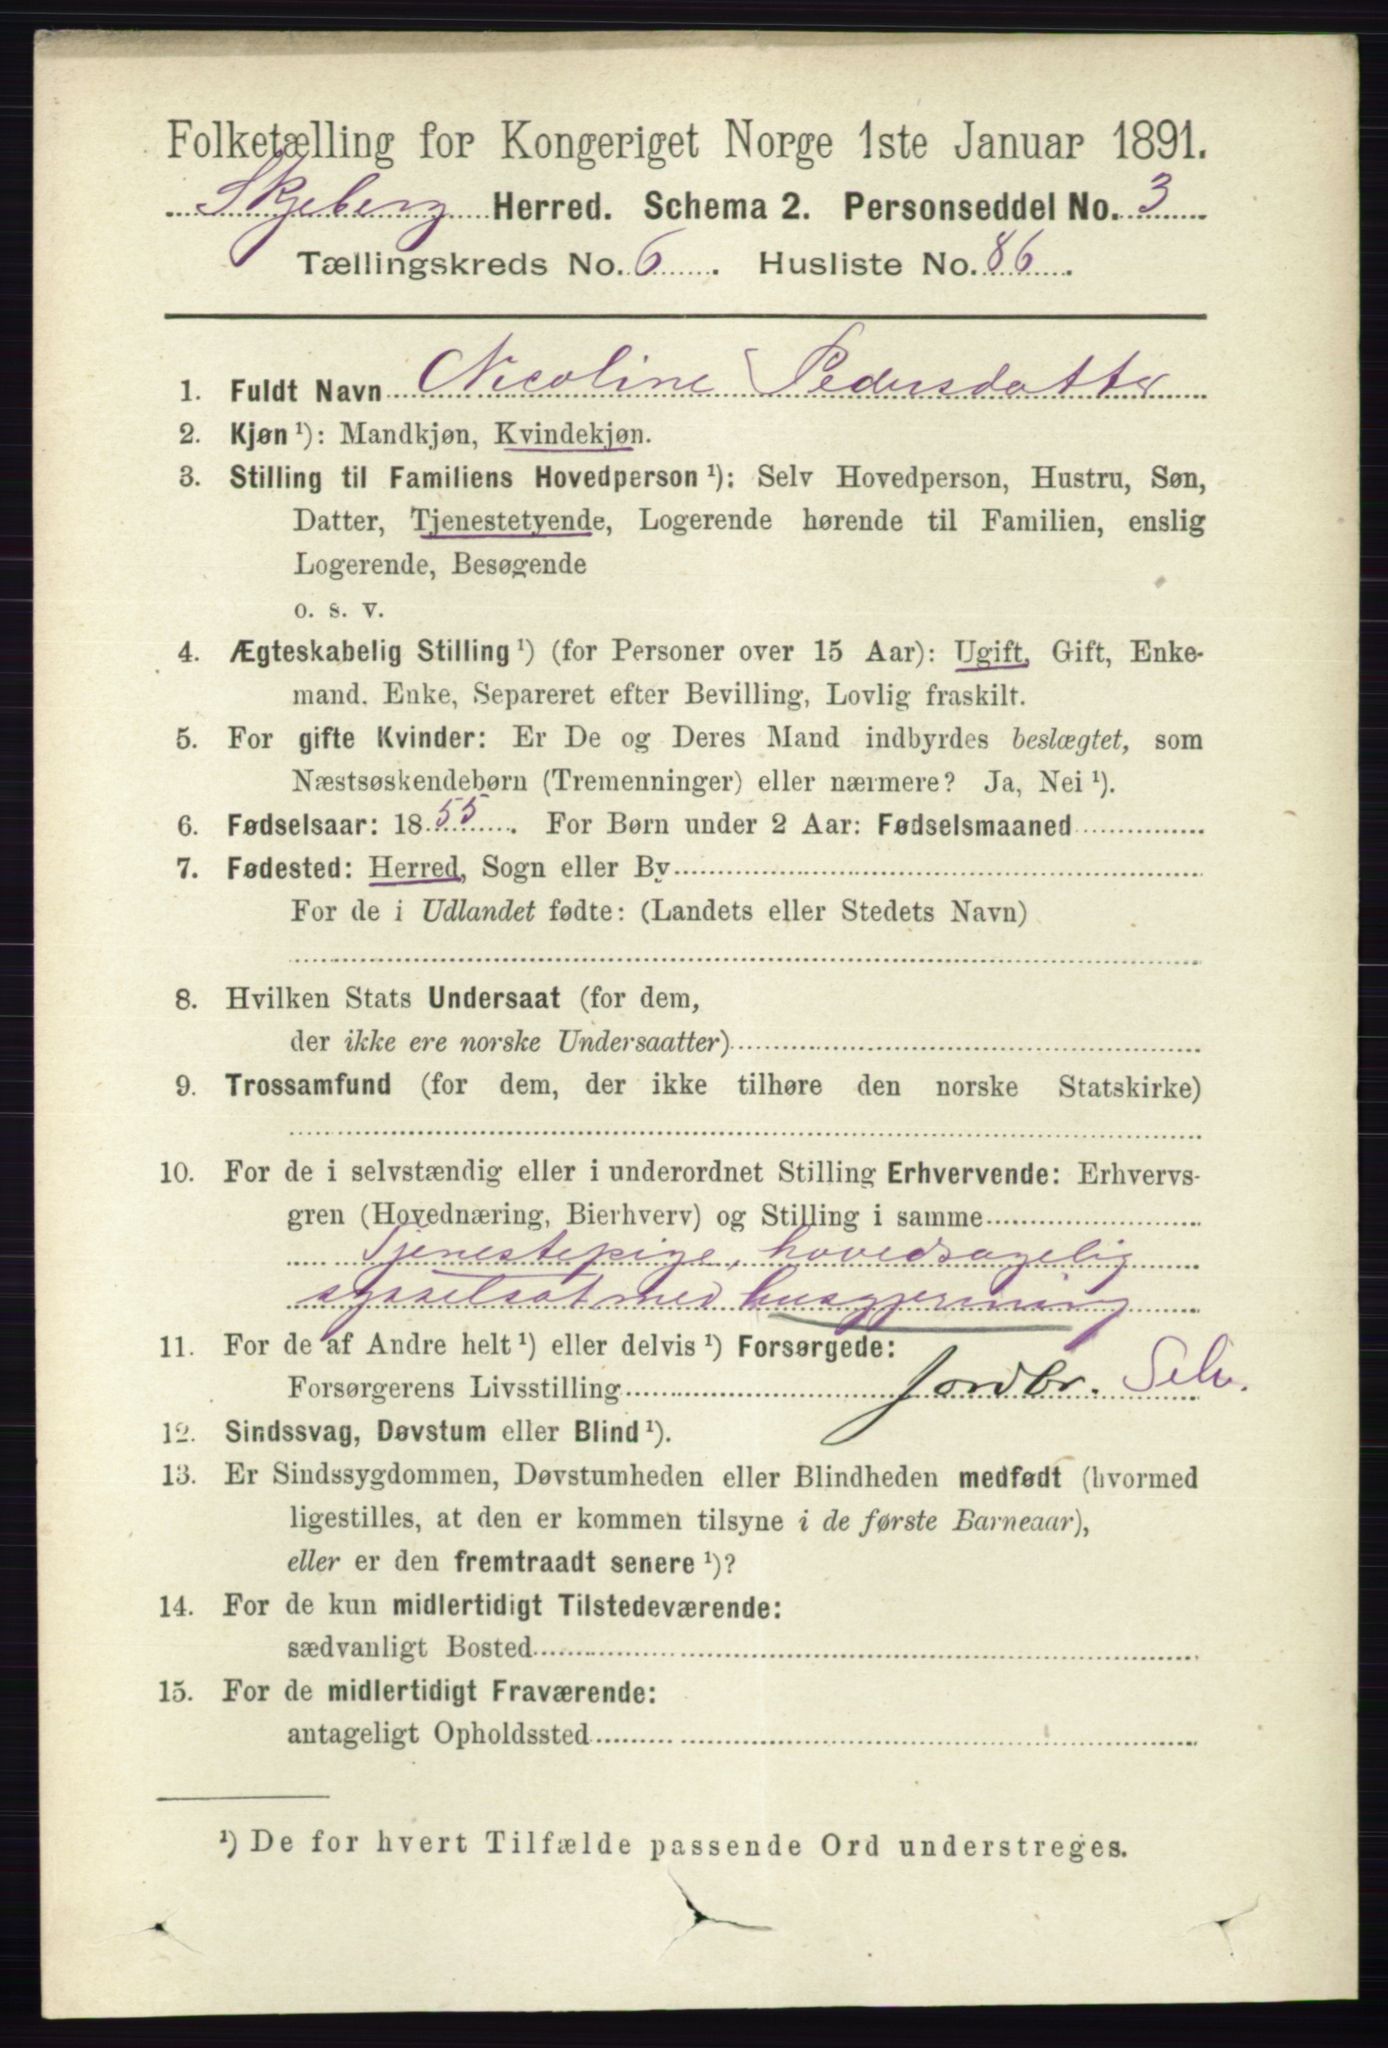 Folketælling for Kongeriget Norge 1ste Januar 1891.
Skjeberg Herred. Schema 2. Personseddel No. 3
Tællingskreds No. 6. Husliste No. 86.
1. Fuldt Navn Nicoline Pedersdatter
2. Kjøn ¹): Mandkjøn, Kvindekjøn.
3. Stilling til Familiens Hovedperson ¹): Selv Hovedperson, Hustru, Søn,
Datter, Tjenestetyende, Logerende hørende til Familien, enslig
Logerende, Besøgende
o. s. v.
4. Ægteskabelig Stilling ¹) (for Personer over 15 Aar): Ugift, Gift, Enke-
mand, Enke, Separeret efter Bevilling, Lovlig fraskilt.
5. For gifte Kvinder: Er De og Deres Mand indbyrdes beslægtet, som
Næstsøskendebørn (Tremenninger) eller nærmere? Ja, Nei ¹).
6. Fødselsaar: 1855. For Børn under 2 Aar: Fødselsmaaned
7. Fødested: Herred, Sogn eller By
For de i Udlandet fødte: (Landets eller Stedets Navn)
8. Hvilken Stats Undersaat (for dem,
der ikke ere norske Undersaatter)
9. Trossamfund (for dem, der ikke tilhøre den norske Statskirke)
10. For de i selvstændig eller i underordnet Stilling Erhvervende: Erhvervs-
gren (Hovednæring, Bierhverv) og Stilling i samme
Tjenestepige, hovedsagelig
sysselsat med husgjerning
11. For de af Andre helt ¹) eller delvis ¹) Forsørgede:
Forsørgerens Livsstilling Jordbr. Selv.
12. Sindssvag, Døvstum eller Blind ¹).
13. Er Sindssygdommen, Døvstumheden eller Blindheden medfødt (hvormed
ligestilles, at den er kommen tilsyne i de første Barneaar),
eller er den fremtraadt senere ¹)?
14. For de kun midlertidigt Tilstedeværende:
sædvanligt Bosted
15. For de midlertidigt Fraværende:
antageligt Opholdssted
¹) De for hvert Tilfælde passende Ord understreges.